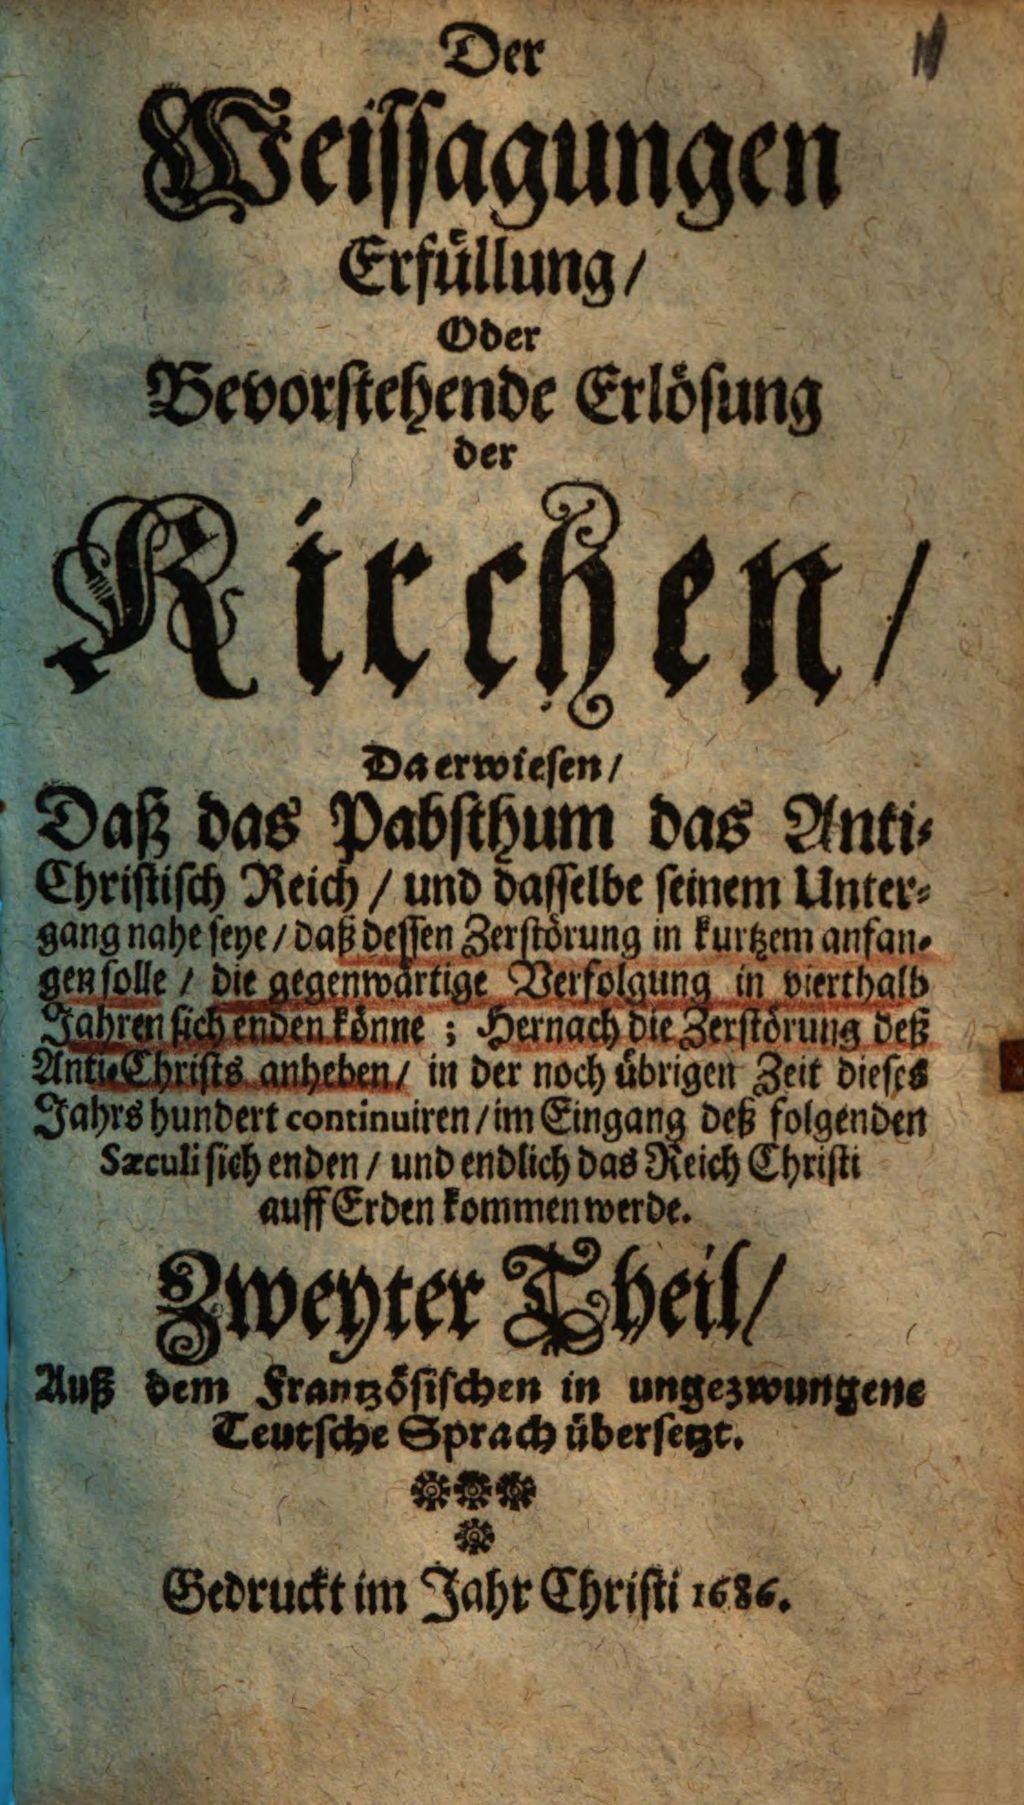 Der
Weissagungen
Erfüllung/
Oder
Bevorstehende Erlösung
der
Kirchen/
Da erwiesen/
Daß das Pabsthum das Anti-
Christisch Reich / und dasselbe seinem Unter-
gang nahe seye / daß dessen Zerstörung in kurtzem anfan-
gen solle / die gegenwärtige Verfolgung in vierthalb
Jahren sich enden könne ; Hernach die Zerstörung deß
Anti-Christs anheben / in der noch übrigen Zeit dieses
Jahrs hundert continuiren / im Eingang deß folgenden
Sæculi sich enden / und endlich das Reich Christi
auff Erden kommen werde.
Zweyter Theil/
Auß dem Frantzösischen in ungezwungene
Teutsche Sprach übersetzt.
Gedruckt im Jahr Christi 1686.